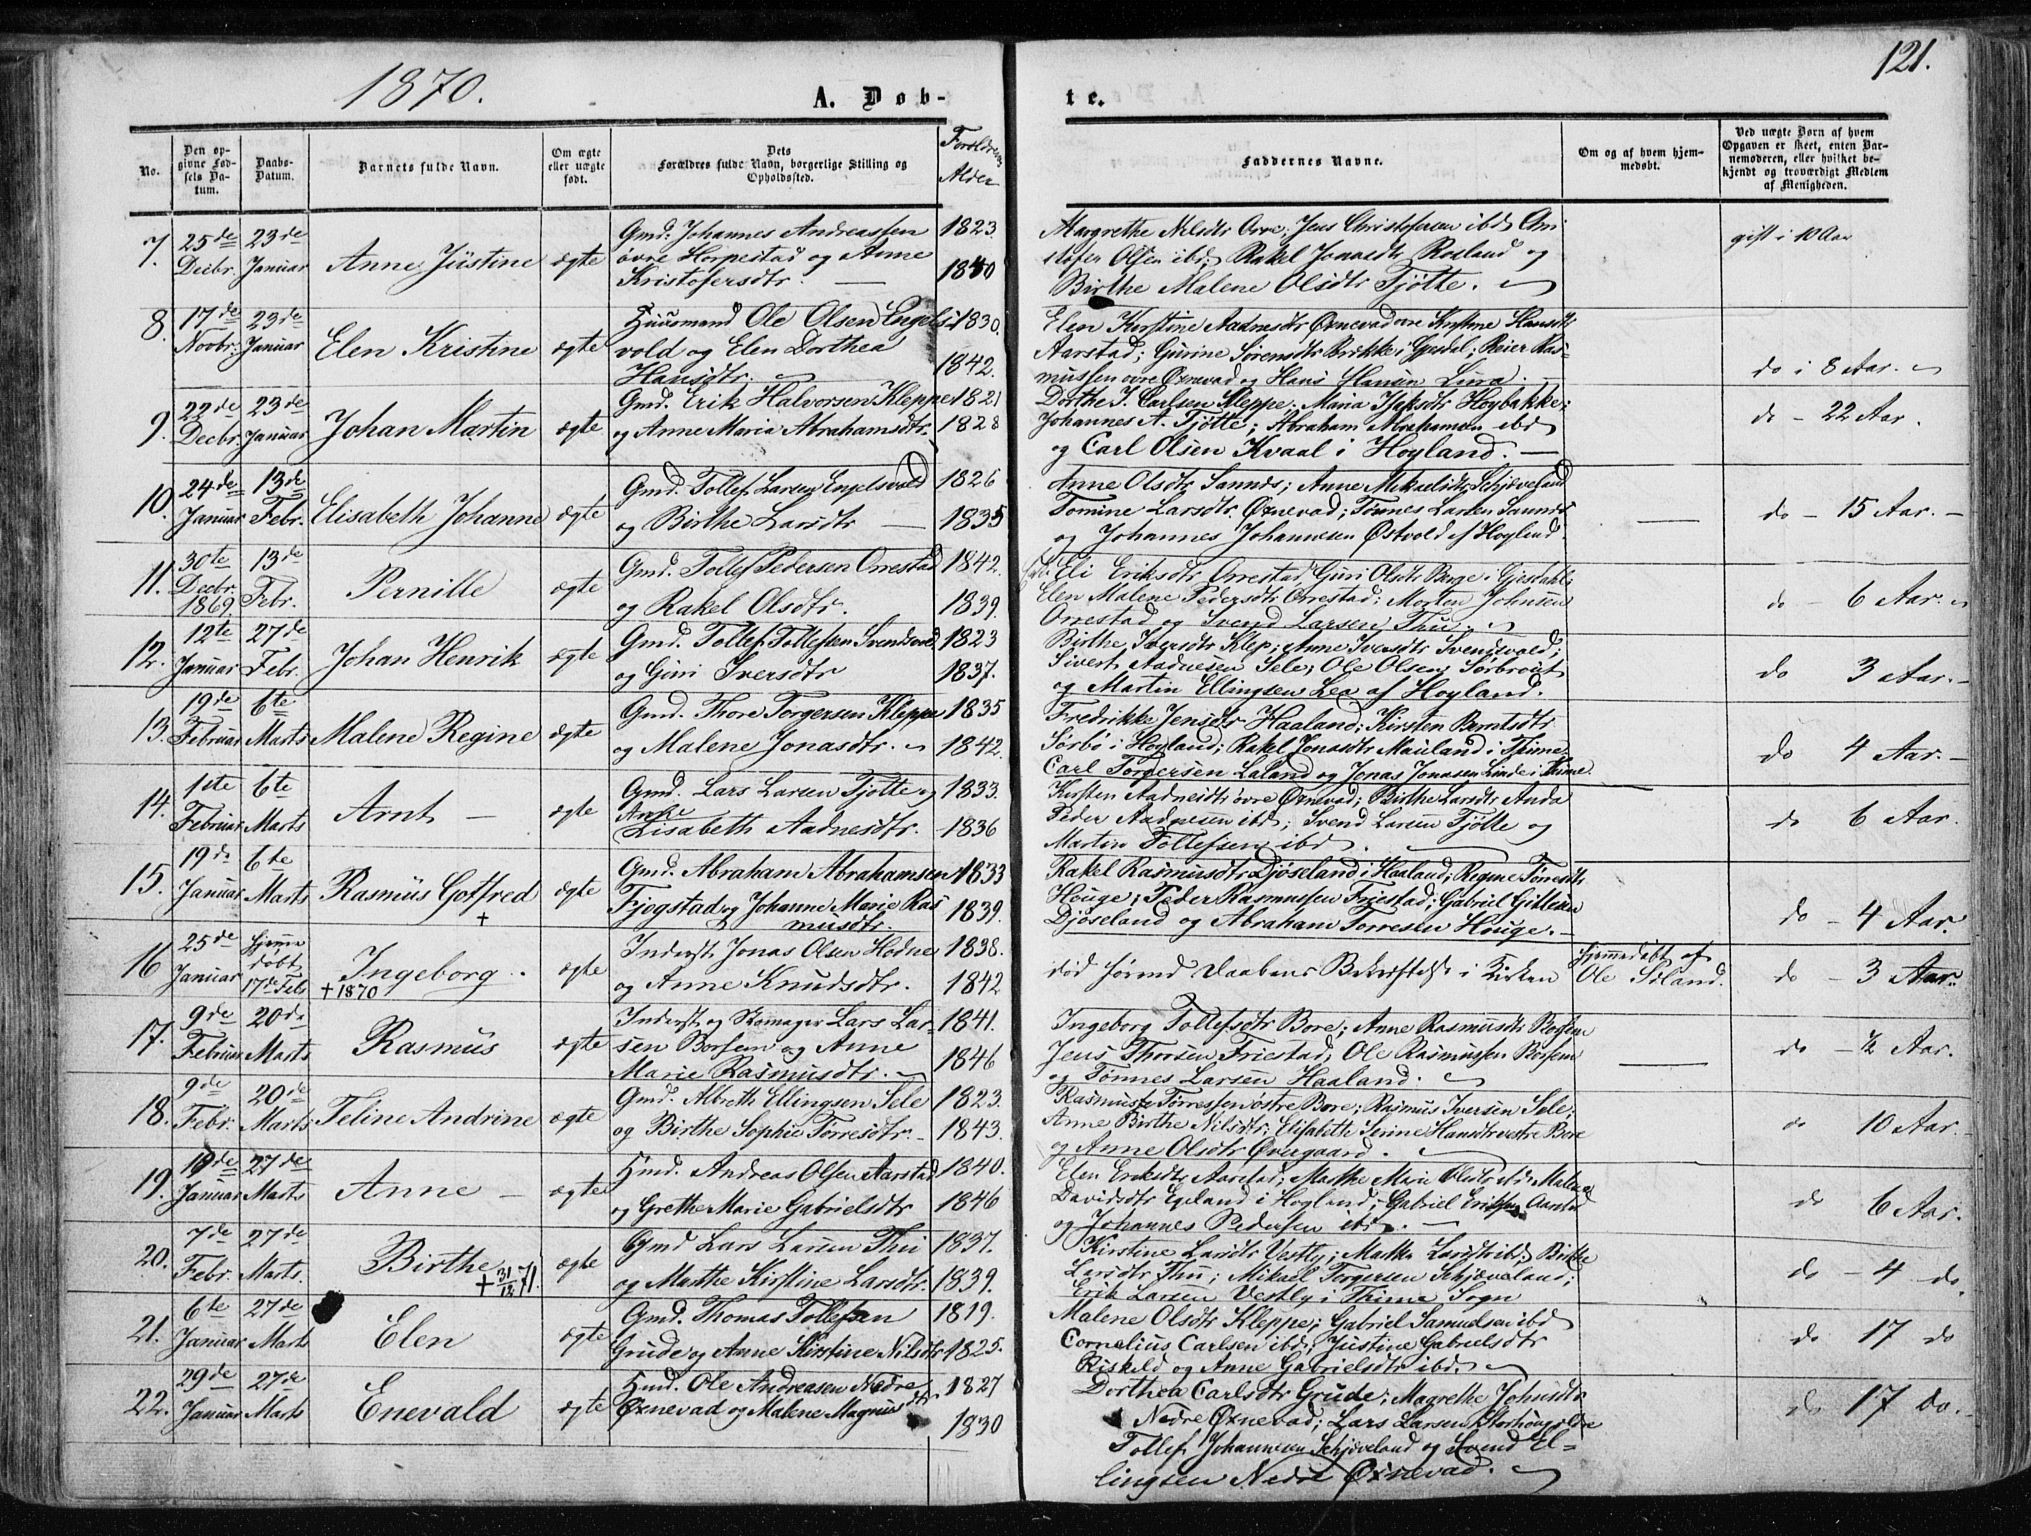 1870.
121.
A. Døb-
te.
No.
Den op-
givne Fød-
sels Da-
tum.
Daabs-
Datum.
Barnets fulde Navn.
Om ægte
eller uægte
født.
Dets
Forældres fulde Navn, borgerlige Stilling og
Opholdssted.
Forældrenes
Alder
Faddernes Navne.
Om og af hvem hjem-
medøbt.
Ved uægte Børn af hvem
Opgaven er skeet, enten Bar-
nemoderen, eller hvilket be-
kjendt og troværdigt Medlem
af Menigheden.
7. 25de Decbr. 23de Januar Anne Justine ægte
Gmd. Johannes Andreassen 1823
øvre Horpestad og Anne 1840
Kristofersdtr.
Margrethe Nilsdtr Orre; Jens Christofersen ibd Chri-
stofer Olsen ibd; Rakel Jonasdtr Roeland og
Birthe Malene Olsdtr Tjøtte.
gift i 10 Aar
8. 17de Novbr. 23de Januar Elen Kristine ægte
Huusmand Ole Olsen Engels- 1830.
vold og Elen Dorthea 1842.
Hansdtr.
Elen Kirstine Aadnesdtr Øxnevad øvre Kirstine Hansdtr
Aarstad; Gurine Sørensdtr Brekke i Gjesdal; Reier Ras-
mussen øvre Øxnevad og Hans Hansen Lura.
do i 8 Aar.
9. 22de Decbr. 23de Januar Johan Martin ægte
Gmd. Erik Halvorsen Kleppe 1821
og Anne Maria Abrahamsdtr. 1828
Dorthe J. Carlsen Kleppe; Maria Isaksdtr Høybakke;
Johannes A. Tjøtte; Abraham Abrahamsen ibd
og Carl Olsen Kvaal i Høyland.
do - 22 Aar.
10. 24de Januar 13de Febr. Elisabeth Johanne ægte
Gmd. Tollef Larsen Engelsvold 1826
og Birthe Larsdtr 1835
Anne Olsdtr Sannes; Anne Mikaelsdtr Schjæveland
Tomine Larsdtr. Øxnevad; Tønnes Larsen Sannes
og Johannes Johannesen Østvold af Høyland
do - 15 Aar.
11. 30te Decbr. 1869 13de Febr. Pernille ægte
Gmd. Tollef Pedersen Orrestad 1842.
og Rakel Olsdtr. 1839.
Eli Eriksdtr Orrestad; Guri Olsdtr Berge i Gjesdahl;
Elen Malene Pedersdtr Orrestad; Morten Johnsen
Orrestad og Svend Larsen Thu.
do - 6 Aar.
12. 12te Januar 27de Febr. Johan Henrik ægte
Gmd. Tollef Tollefsen Svendsvold 1823
og Guri Iversdtr 1837.
Birthe Iversdtr Klep; Anne Iversdtr Svendsvold;
Sivert Aadnesen Sele; Ole Olsen Sørbroit
og Martin Ellingsen Lea af Høyland.
do 3 Aar.
13. 19de Februar 6te Marts Malene Regine ægte
Gmd. Thore Torgersen Kleppe 1835
og Malene Jonasdtr. 1842.
Fredrikke Jensdtr Haaland; Kirsten Berntsdtr
Sørbø i Høyland; Rakel Jonasdtr Mauland i Thime
Carl Torgersen Laland og Jonas Jonasen Linde i Thime.
do 4 Aar.
14. 1ste Februar 6te Marts Arnt ægte
Gmd. Lars Larsen Tjøtte og 1833.
Anne
Lisabeth Aadnesdtr. 1836
Kirsten Aadnesdtr øvre Øxnevad; Birthe Larsdtr Anda
Peder Aadnesen ibd; Svend Larsen Tjøtte og
Martin Tollefsen ibd.
do 6 Aar.
15. 19de Januar 6te Marts Rasmus Gotfred ægte
+
Gmd. Abraham Abrahamsen 1833
Fjogstad og Johanne Marie Ras 1839.
musdtr.
Rakel Rasmusdtr Djøseland i Haaland; Regine Tørresdtr
Houge; Peder Rasmussen Friestad; Gabriel Gitlesen
Djøseland og Abraham Torresen Houge.
do - 4 Aar.
16 25de Januar Hjemmedøbt, 17de Feb Ingeborg. ægte
+ 1870
Inderst Jonas Olsen Hodne 1838.
og Anne Knudsdtr. 1842
død førend Daabens Bekræftelse i Kirken
hjemmedøbt af
Ole Idland.
do - 3 Aar.
17. 9de Februar 20de Marts Rasmus ægte
Inderst og Skomager Lars Lar- 1841.
sen Borsem og Anne 1846
Marie Rasmusdtr.
Ingeborg Tollefsdtr Bore; Anne Rasmusdtr Borsem
Jens Thorsen Friestad; Ole Rasmussen Borsem
og Tønnes Larsen Haaland.
do - ½ Aar.
18. 9de Febr. 20de Marts Teline Andrine ægte
Gmd. Albreth Ellingsen Sele 1823.
og Birthe Sophie Tørresdtr. 1843.
Rasmus Tørressen østre Bore; Rasmus Iversen Sele;
Anne Birthe Nilsdtr; Elisabeth Serine Hansdtr vestre Bore
og Anne Olsdtr Øvregaard.
do 10 Aar.
19. 19de Januar 27de Marts Anne ægte
Hmd. Andreas Olsen Aarstad 1840.
og Grethe Marie Gabrielsdtr 1846
Elen Eriksdtr Aarstad; Marthe Marie Olsdtr ibd; Malene
Davidsdtr Egeland i Høyland; Gabriel Eriksen Aarstad
og Johannes Pedersen ibd.
do 6 Aar.
20. 7de Febr. 27de Marts. Birthe ægte
+ 31/12 71.
Gmd Lars Larsen Thu 1837.
og Marthe Kirstine Larsdtr. 1839.
Kirstine Larsdtr Vestly; Malka Larsdtr ibd; Birthe
Larsdtr Thu; Mikael Torgersen Schjæveland;
Erik Larsen Vestly i Thime Sogn
do - 4 do.
21. 6te Januar 27de Marts Elen ægte
Gmd. Thomas Tollefsen 1819.
Grude og Anne Kirstine Nilsdtr 1825.
Malene Olsdtr Kleppe; Gabriel Samuelsen ibd
Cornelius Carlsen ibd; Justine Gabrielsdtr
Riskeld og Anne Gabrielsdtr ibd.
do 17 do
22. 29de Januar 27de Marts Enevald ægte
Hmd. Ole Andreasen Nedre 1827
Øxnevad og Malene Magnusdtr 1830
Dorthea Carlsdtr Grude; Magrethe Johnsdtr
Nedre Øxnevad; Lars Larsen Storhoug ibd
Tollef Johannesen Schjæveland og Svend El-
lingsen Nedre Øxnevad.
do 17 do.